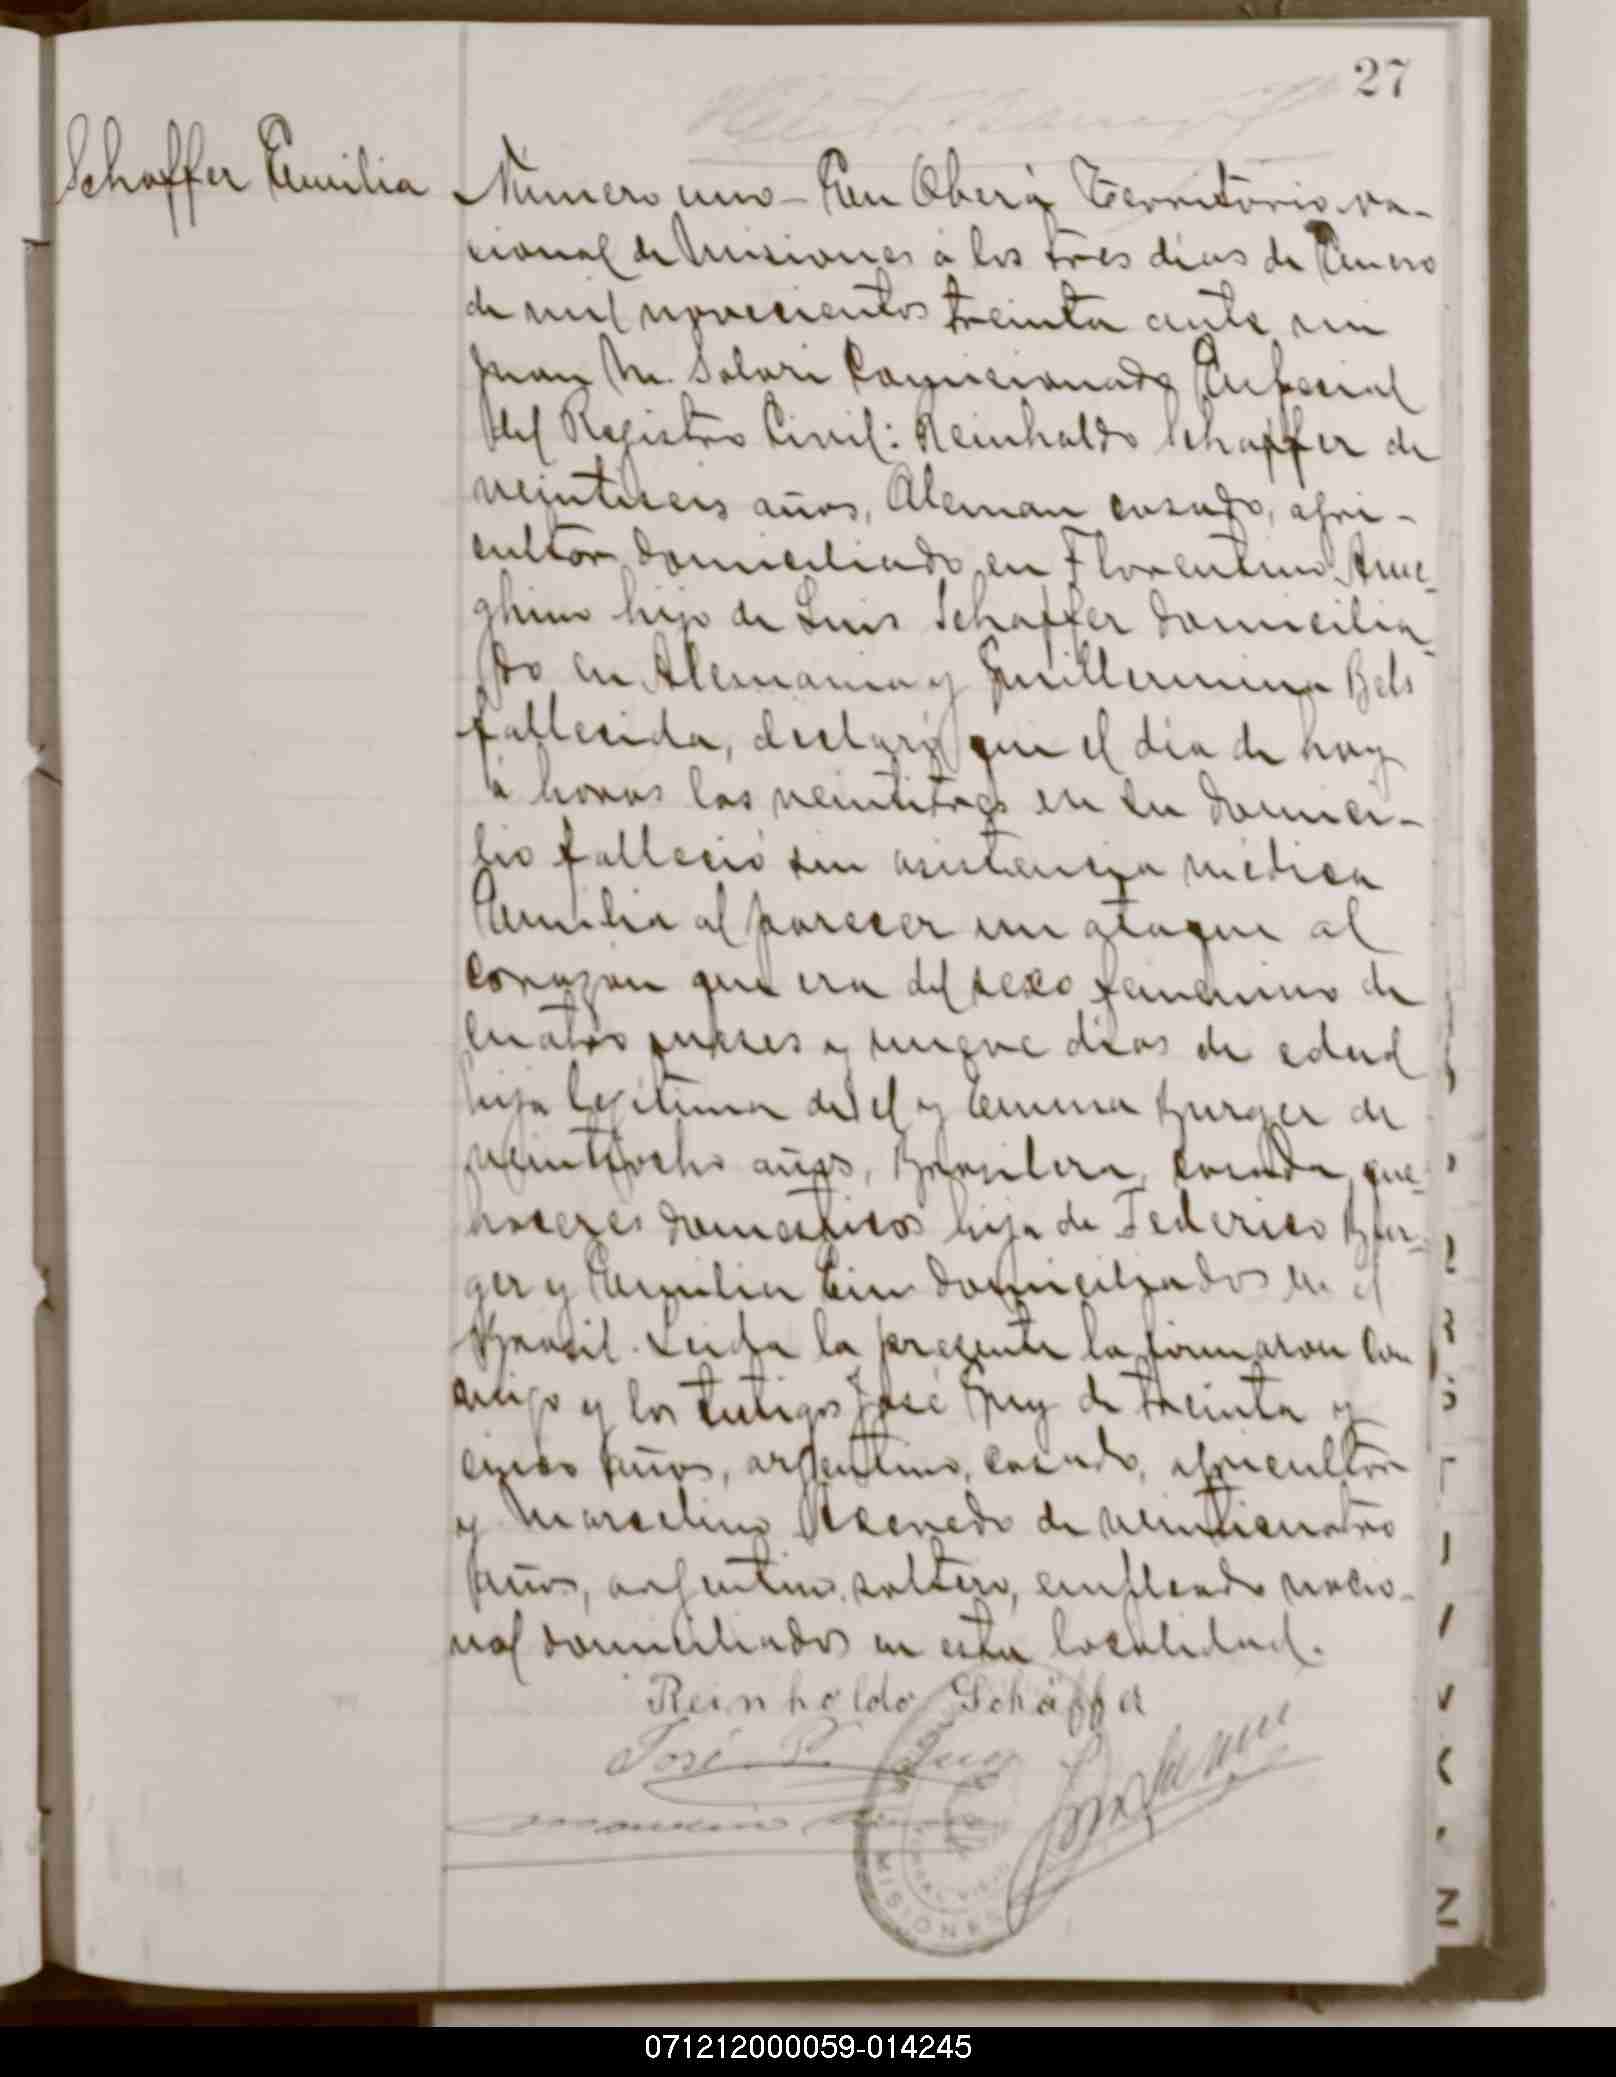 27
Schaffer Emilia
Número uno - En Oberá Territorio na-
cional de Misiones á los tres dias de Enero
de mil novecientos treinta ante mi
Juan M. Solari Comicionado Especial
del Registro Civil: Reinhaldo Schaffer de
veintiseis años, Aleman casado, agri-
cultor domiciliado en Florentino Ame-
ghino hijo de Luis Schaffer domicilia-
do en Alemania y Guillermina Bels
fallecida, declaró que el dia de hoy
á horas las veintitres en su domici-
lio falleció sin asistencia médica
Emilia al parecer un ataque al
corazon que era del sexo femenino de
cuatro meses y nueve dias de edad
hija legitima de el y Emma Burger de
veintiocho años, Brasilera, casada, que-
haceres domesticos hija de Federico Bur-
ger y Emilia domiciliados en el
Brasil. Leida la presente la firmaron con
migo y los testigos José de treinta y
cinco años, argentino, casado, agricultor
y Marcelino Acevedo de veinticuatro
años, argentino, soltero, empleado nacio-
nal domiciliados en esta localidad.
Reinholdo Schäffer
José P.
MISIONES
071212000059-014245